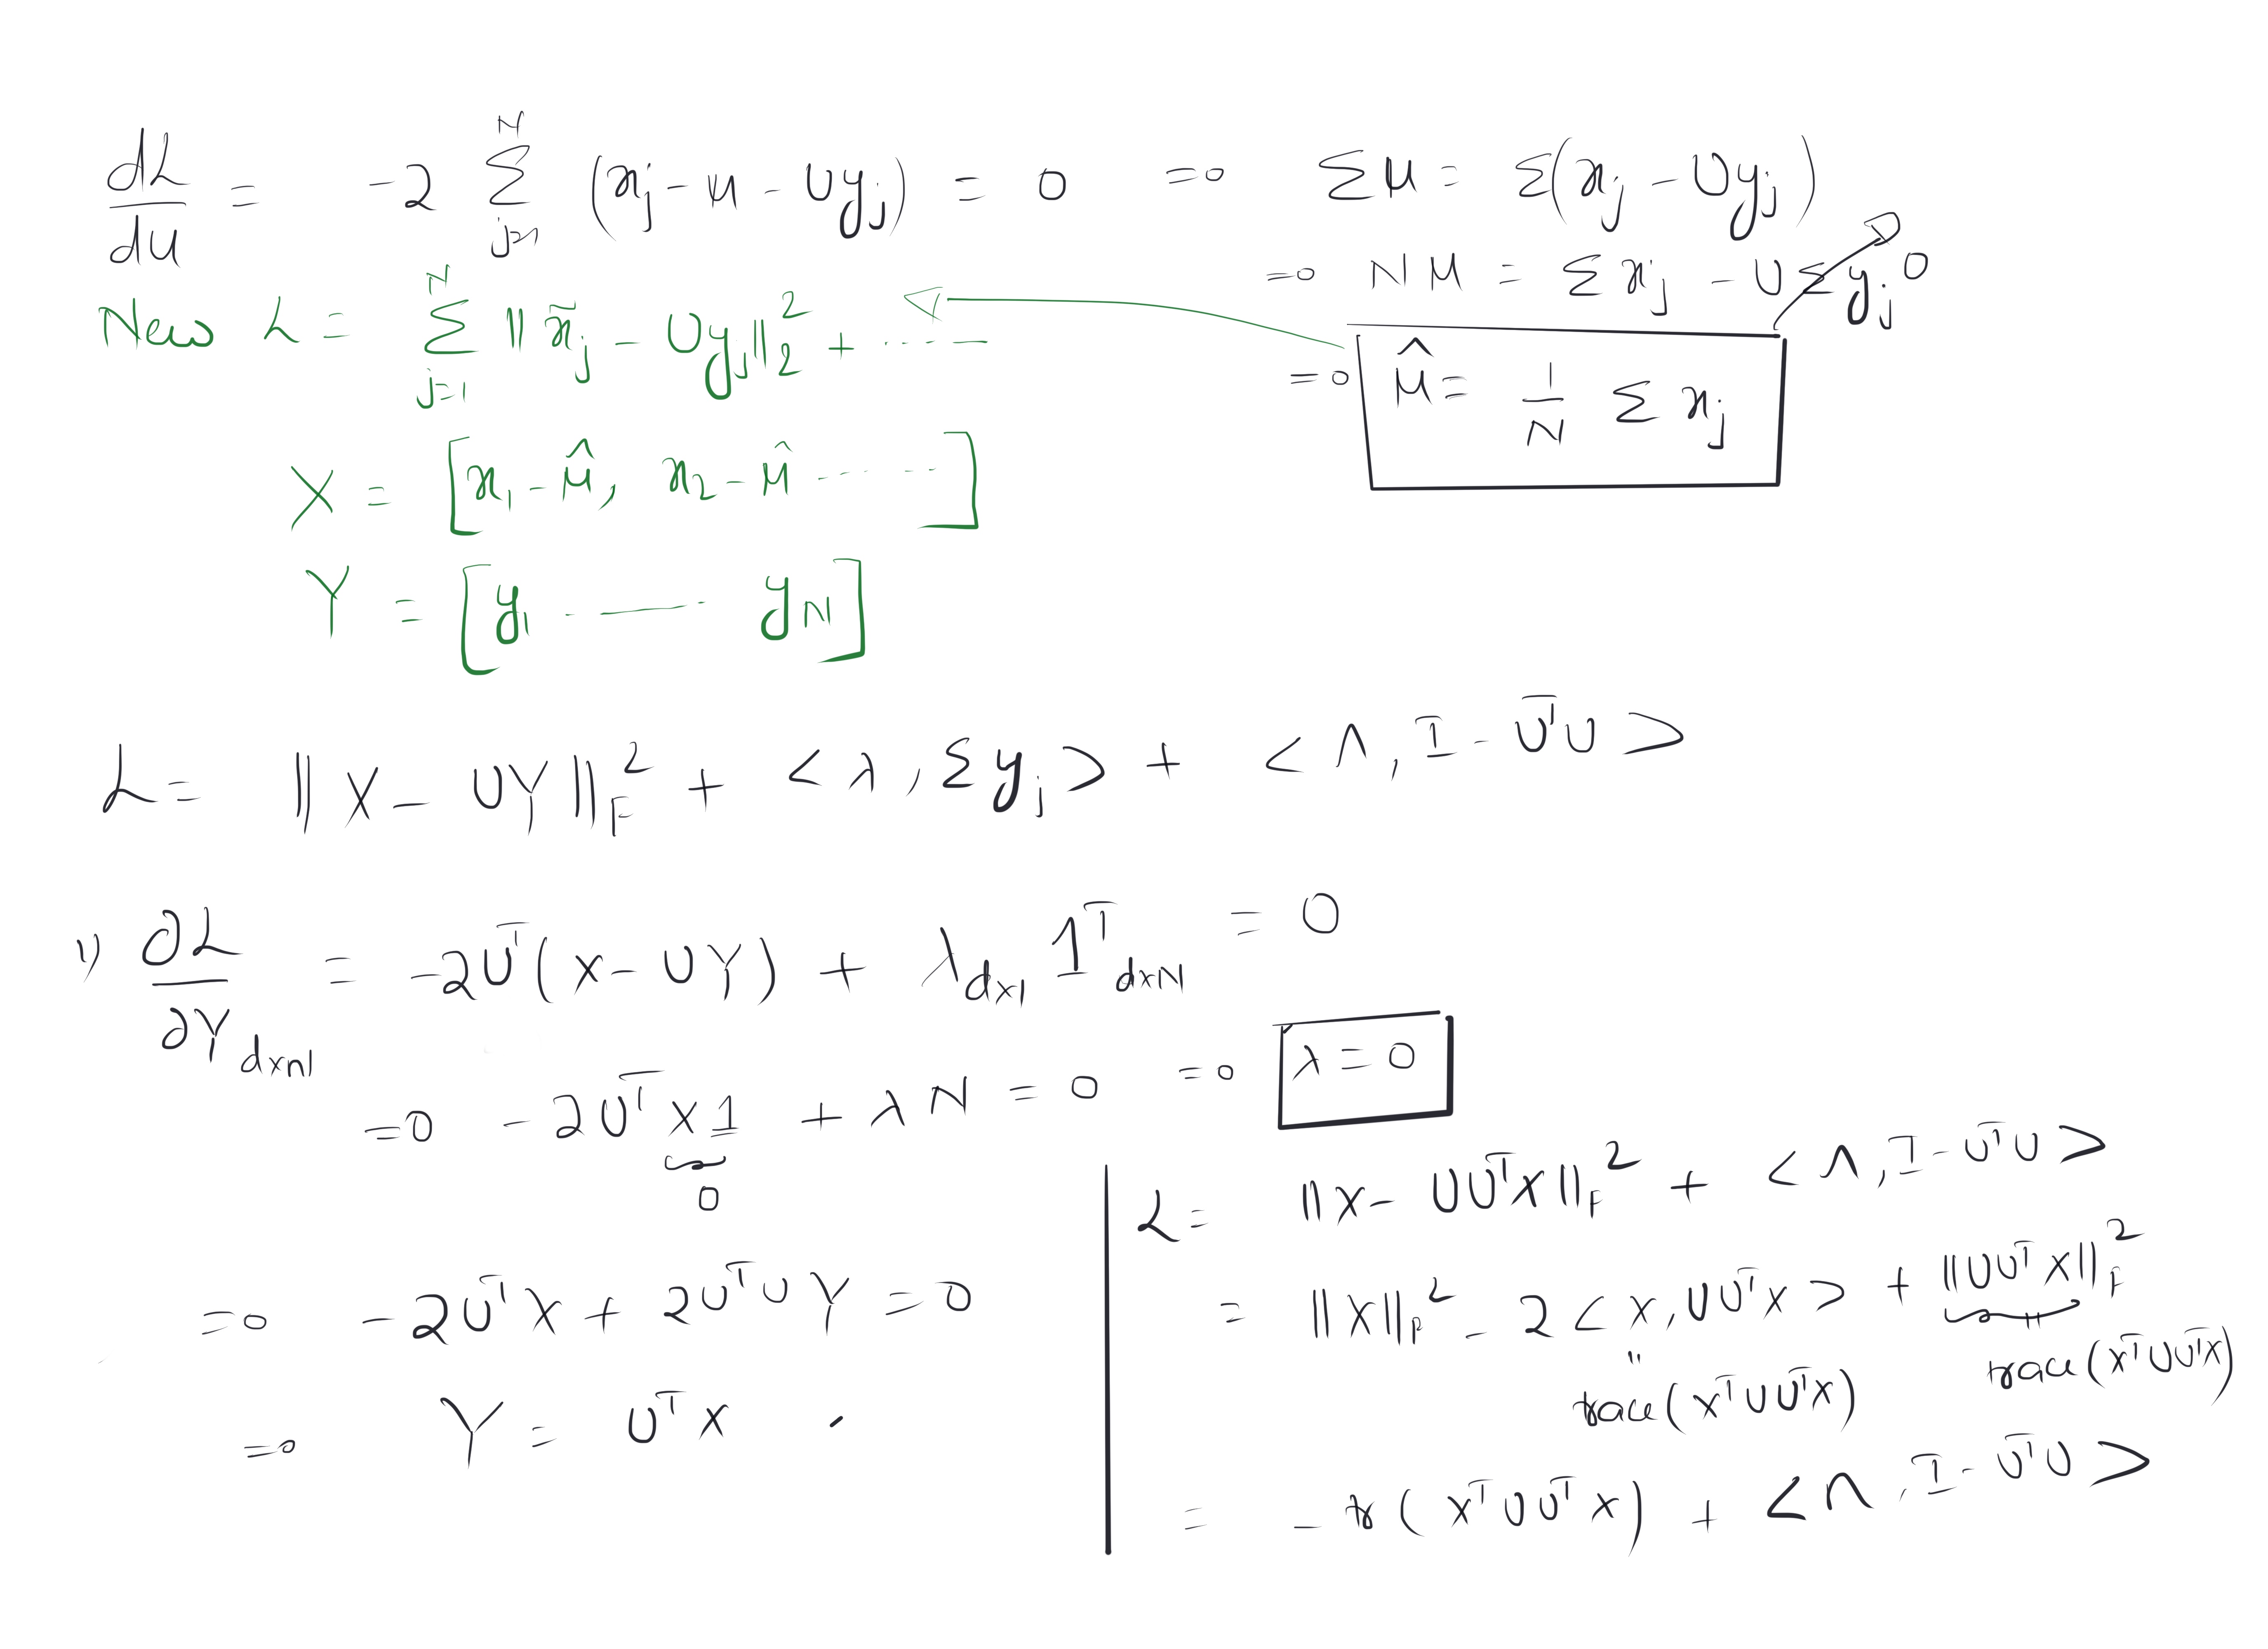 dL/du = -2 Σ_{j=1}^{N} (x_j - μ - Uy_j) = 0 ⇒ Σμ = Σ(x_j - Uy_j)
⇒ Nμ = Σx_j - UΣy_j → 0
New L = Σ_{j=1}^{N} ||x̃_j - Uy_j||_2^2 + ......
⇒ μ̂ = 1/N Σ x_j
X = [x_1 - μ̂, x_2 - μ̂ ......]
Y = [y_1 ...... y_N]
L = ||X - UY||_F^2 + <λ, Σy_j> + <Λ, I - U^T U>
1) ∂L/∂Y_{dxN} = -2U^T(X - UY) + λ_{dx1} 1^T_{dxN} = 0
⇒ -2U^T X1 + λN = 0 ⇒ λ = 0
0
⇒ -2U^T X + 2U^T UY = 0
⇒ Y = U^T X .
L = ||X - UU^T X||_F^2 + <Λ, I - U^T U>
= ||X||_F^2 - 2<X, UU^T X> + ||UU^T X||_F^2
" trace(X^T UU^T X) trace(X^T UU^T X)
= - tr(X^T UU^T X) + <Λ, I - U^T U>